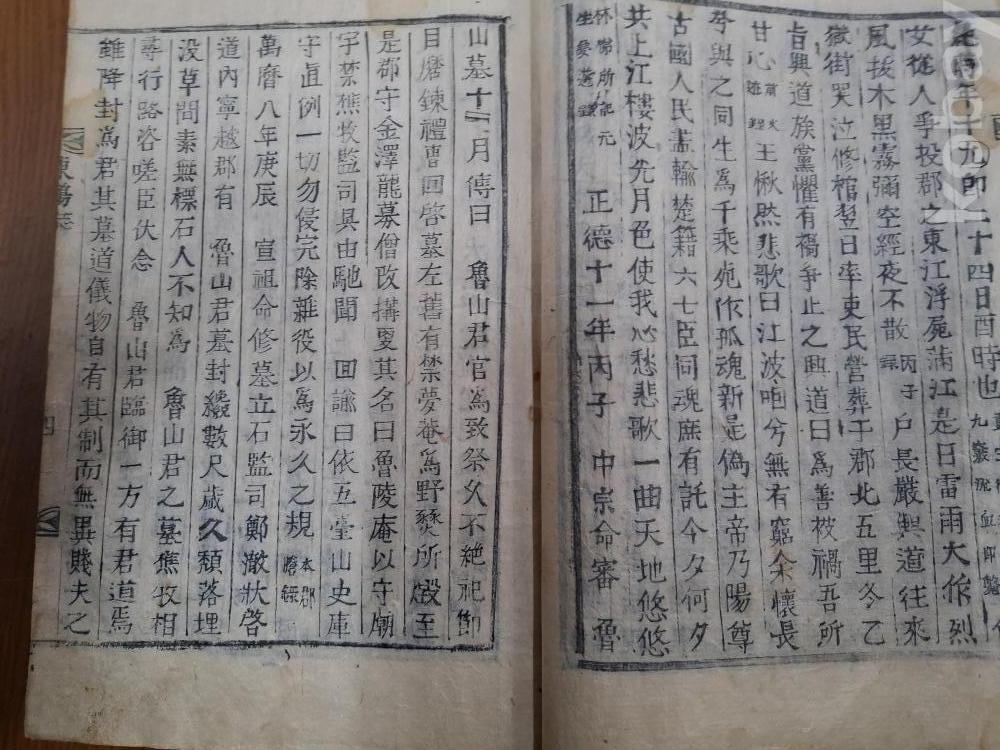 時年十九即二十四日酉時也
女從人爭投郡之東江浮屍滿江是日雷雨大作烈
風拔木黑霧彌空經夜不散 丙子 戶長嚴興道往來
獄街哭泣修棺翌日率吏民營葬于郡北五里冬乙
旨興道族黨懼有禍爭止之興道曰爲善被禍吾所
甘心 王愀然悲歌曰江波咽兮無有窮余懷長
兮與之同生爲千乘死作孤魂新是僞主帝乃陽尊
古國人民盡輸楚籍六七臣同魂庶有託今夕何夕
共上江樓波光月色使我心愁悲歌一曲天地悠悠
正德十一年丙子 中宗命審 魯
山墓十二月傳曰 魯山君官爲致祭久不絶祀節
目磨鍊禮曹回啓墓左舊有禁夢菴爲野燹所燬至
是郡守金澤龍募僧改搆更其名曰魯陵庵以守廟
宇禁樵牧監司具由馳聞 回諭曰依五臺山史庫
守直例一切勿侵完除雜役以爲永久之規 本郡謄錄
萬曆八年庚辰 宣祖命修墓立石監司鄭澈狀啓
道內寧越郡有 魯山君墓封纔數尺歲久頹落埋
没草間素無標石人不知爲 魯山君之墓樵牧相
尋行路咨嗟臣伏念 魯山君臨御一方有君道焉
雖降封爲君其墓道儀物自有其制而無異賤夫之
四